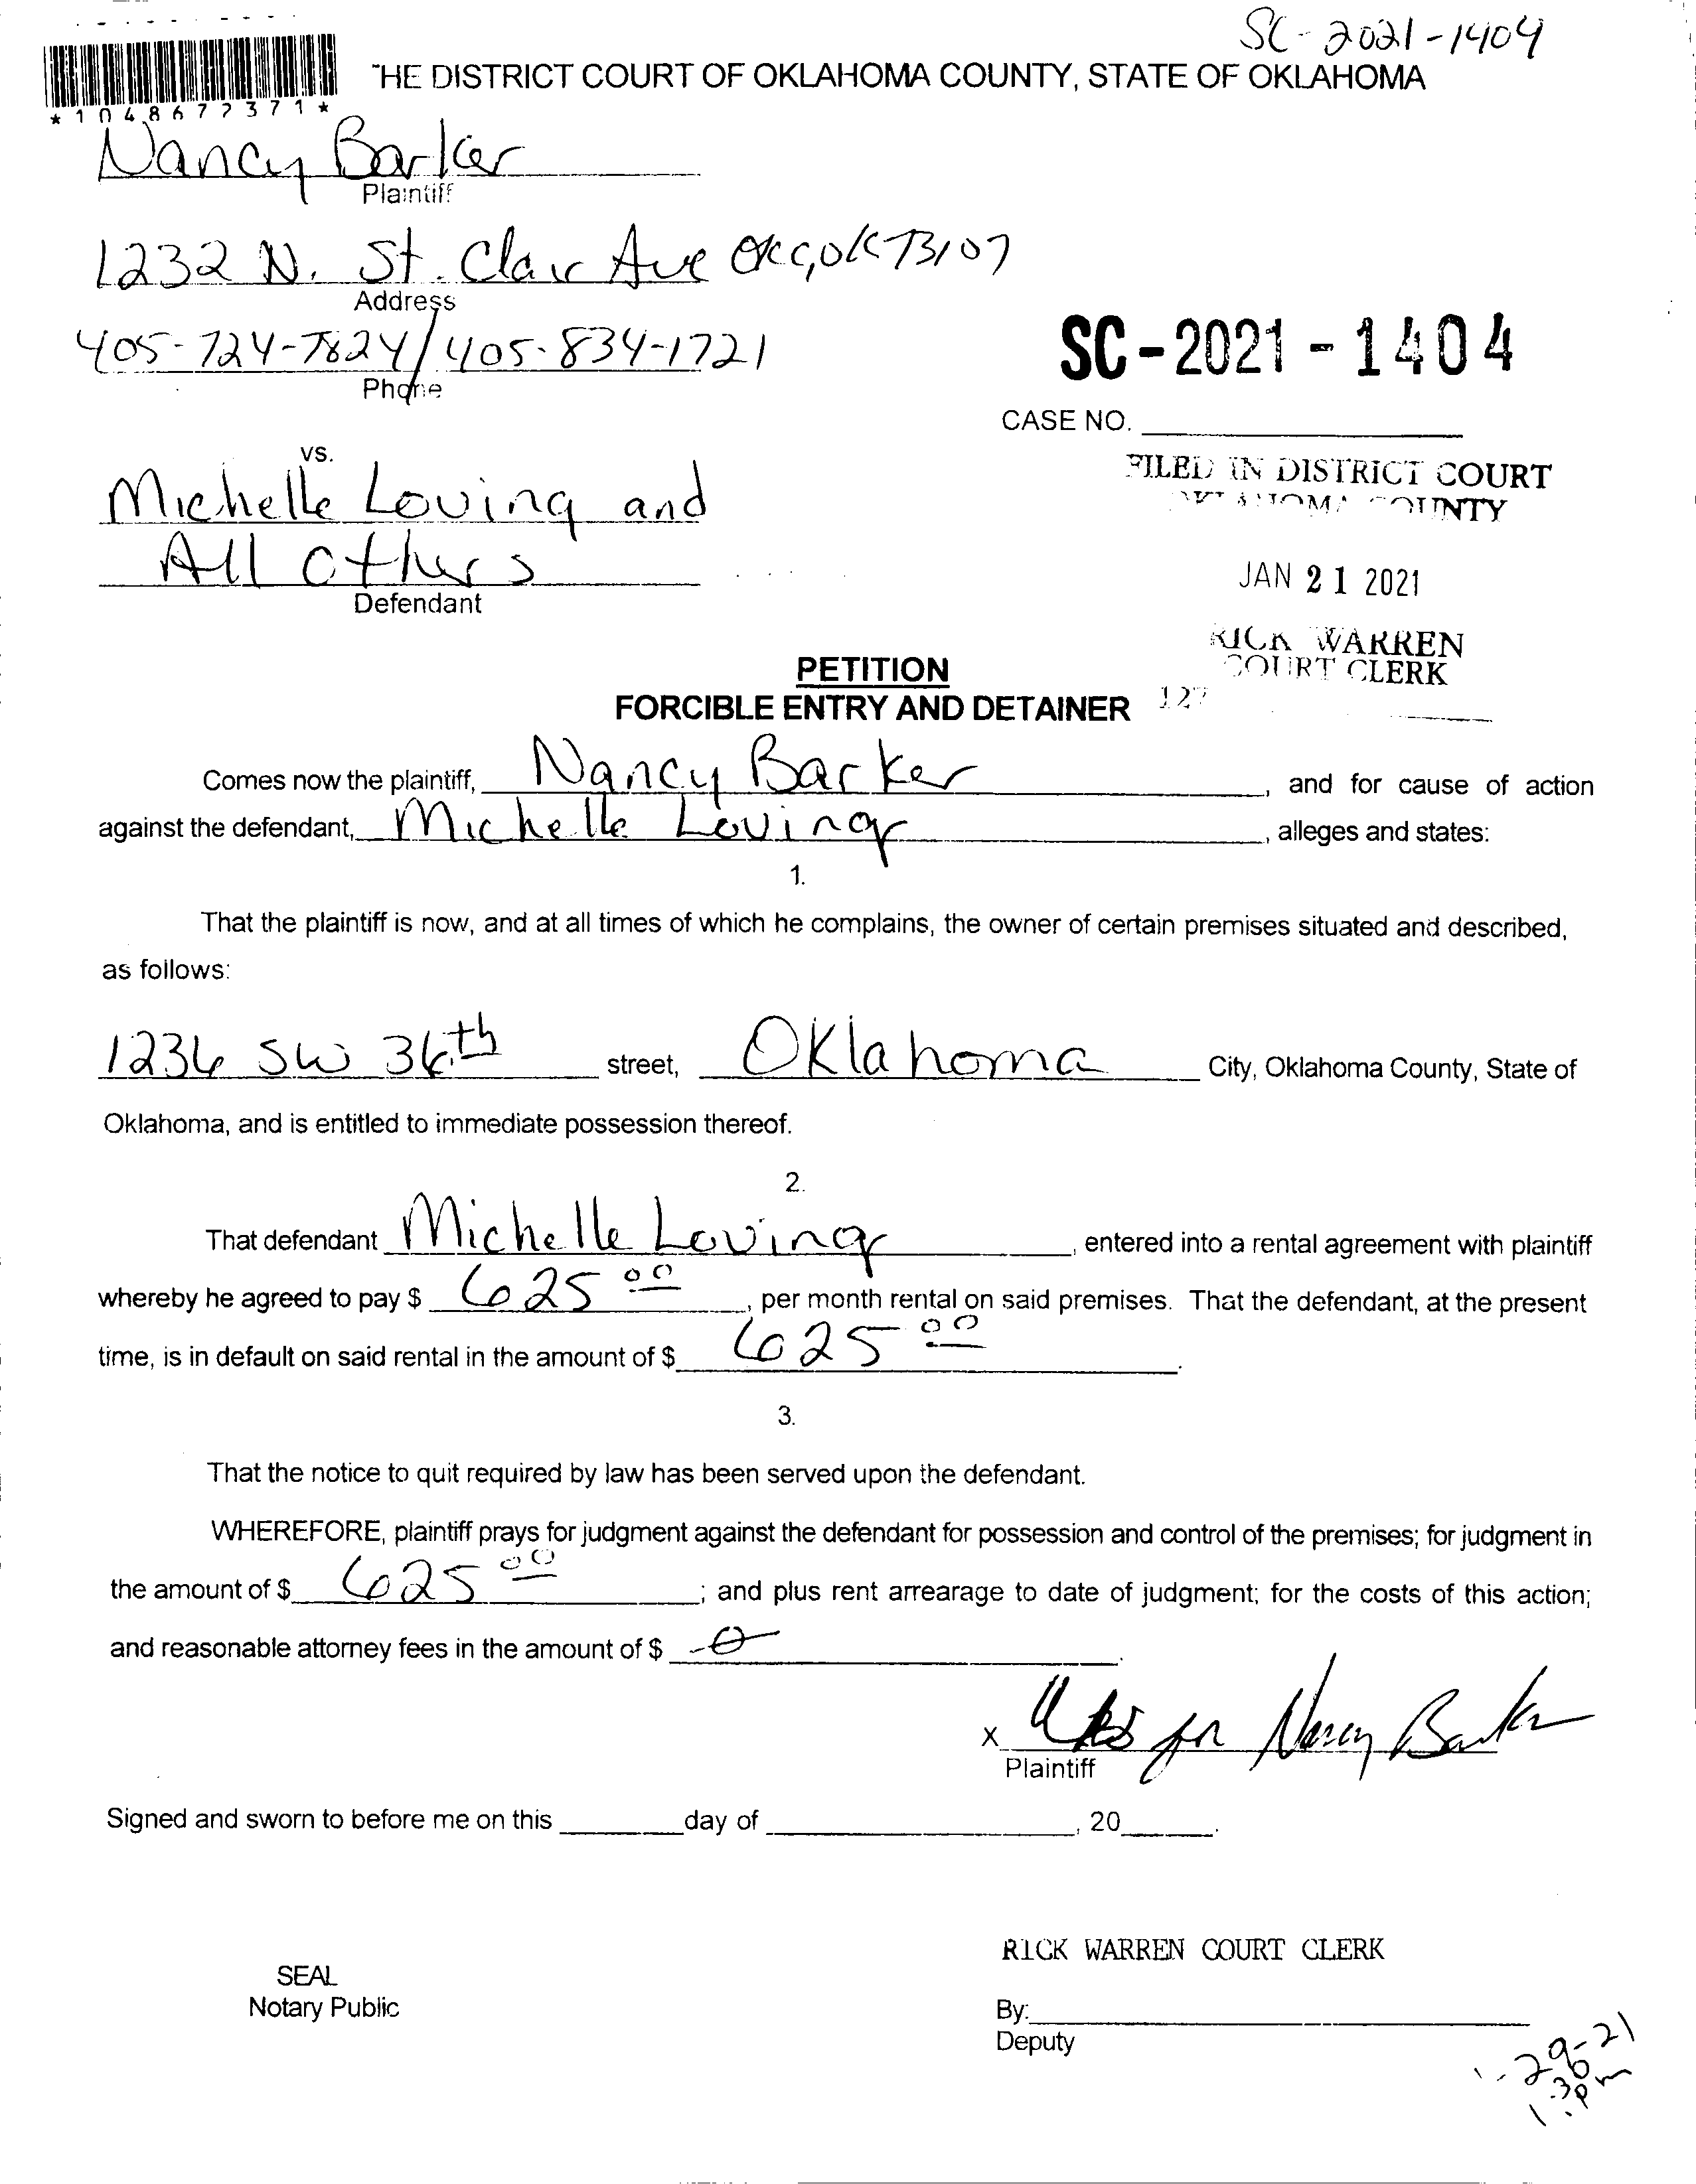 SC-2021-1404
THE DISTRICT COURT OF OKLAHOMA COUNTY, STATE OF OKLAHOMA
*1048677371*
Nancy Barker
Plaintiff
1232 N. St. Clair Ave OKC, OK 73107
Address
405-724-7824/405-834-1721
Phone
SC-2021-1404
CASE NO.
vs.
FILED IN DISTRICT COURT
OKLAHOMA COUNTY
Michelle Loving and
All Others
Defendant
JAN 21 2021
RICK WARREN
COURT CLERK
127
PETITION
FORCIBLE ENTRY AND DETAINER
Comes now the plaintiff, Nancy Barker, and for cause of action
against the defendant, Michelle Loving, alleges and states:
1.
That the plaintiff is now, and at all times of which he complains, the owner of certain premises situated and described,
as follows:
1236 SW 36th street, Oklahoma City, Oklahoma County, State of
Oklahoma, and is entitled to immediate possession thereof.
2.
That defendant Michelle Loving, entered into a rental agreement with plaintiff
whereby he agreed to pay $ 625 00, per month rental on said premises. That the defendant, at the present
time, is in default on said rental in the amount of $ 625 00.
3.
That the notice to quit required by law has been served upon the defendant.
WHEREFORE, plaintiff prays for judgment against the defendant for possession and control of the premises; for judgment in
the amount of $ 625 00; and plus rent arrearage to date of judgment; for the costs of this action;
and reasonable attorney fees in the amount of $ -0-.
X for Nancy Barker
Plaintiff
Signed and sworn to before me on this ____ day of ____, 20____.
RICK WARREN COURT CLERK
SEAL
Notary Public
By:
Deputy
1-29-21
1:30 pm